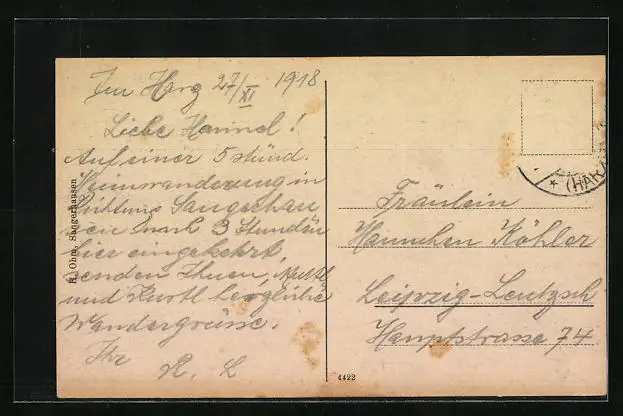 Im Harz 27/XI 1918
Liebe Hannel!
Auf einer 5 stünd.
Heimwanderung in
Richtung Sangerhau
sen nach 3 Stunden
hier eingekehrt,
senden Ihnen,
und Kurtl herzliche
Wandergrüsse.
Ihr
K. L
H. Ohm, Sangerhausen
4422
(HARZ
Fräulein
Hannchen Köhler
Leipzig-Leutzsch
Hauptstrasse 74